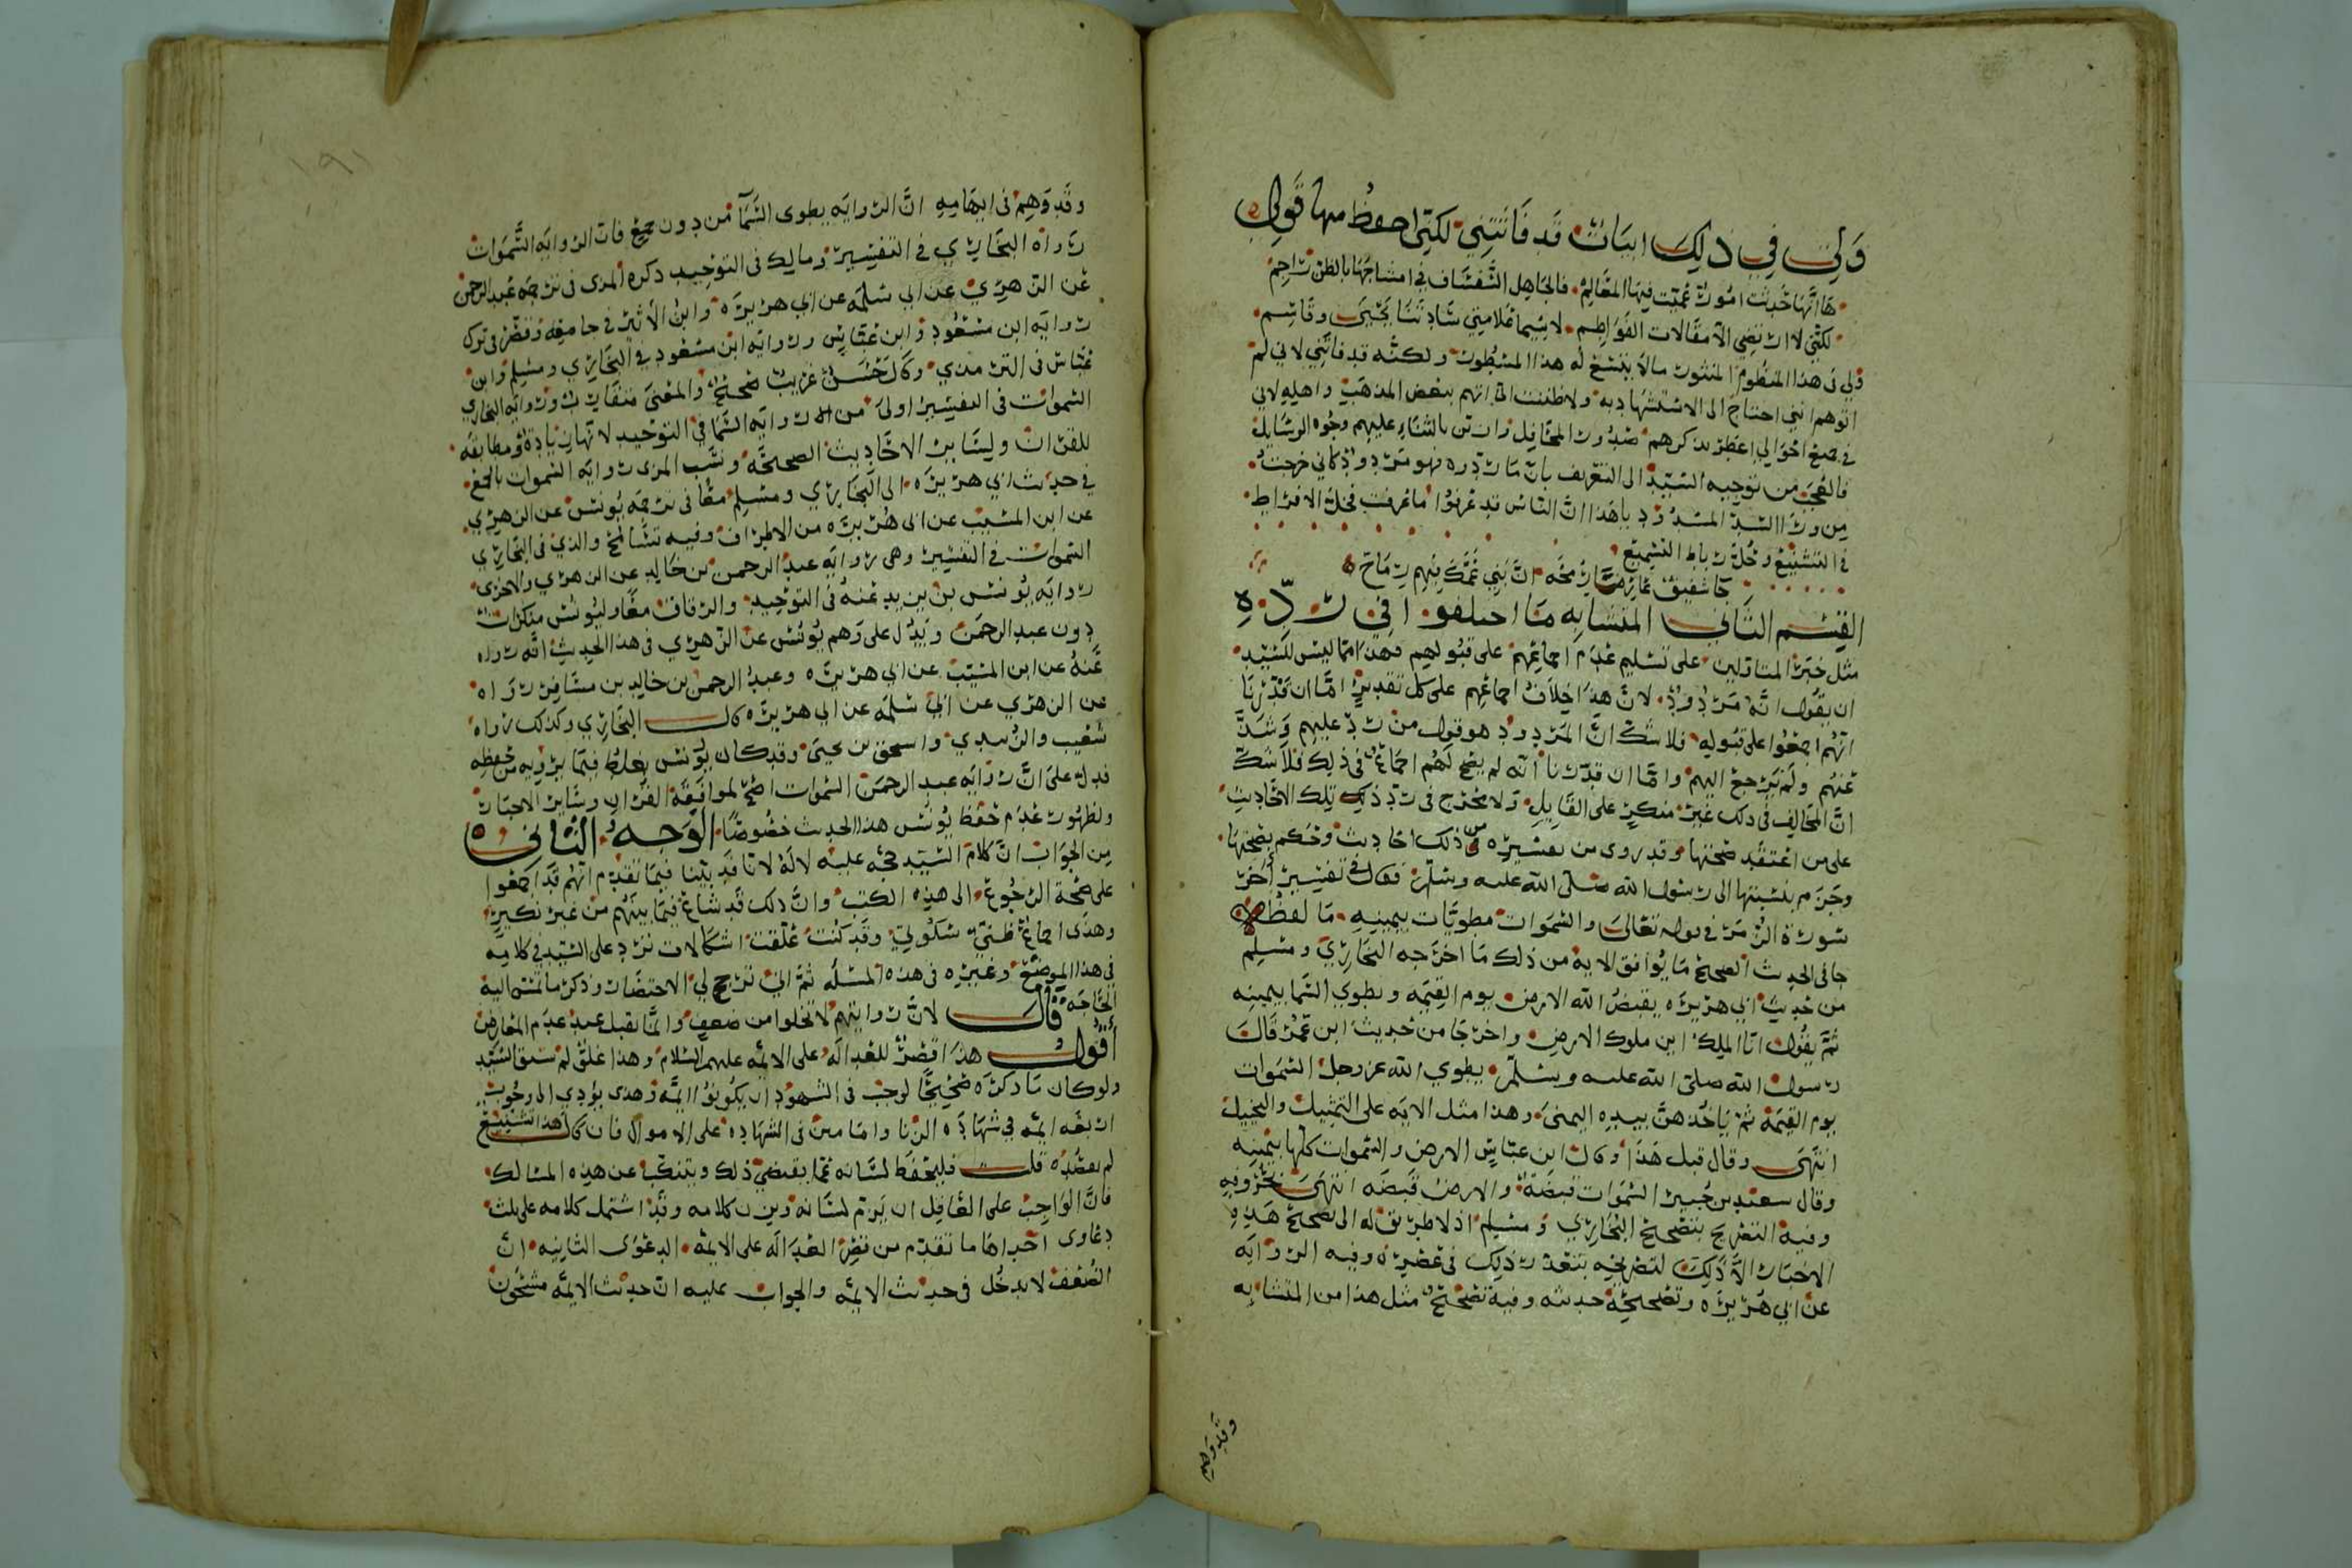 ولي في ذلك ابيات قد فاتتني لكني احفظ منها قولي
لكنني لا ارتضي الا مقالات الفواطم لا سيما علامتي ساداتنا يحيى وقاسم
ولي في هذا المنظوم المنثور مالا يتسع له هذا المسطور ولكنه قد فاتني لاني لم
اتوهم انني احتاج الى الاستشهاد به ولا ظننت اني اتهم ببغض المذهب واهله لاني
في جميع احوالي اعطر بذكرهم صدور المحافل وازين بالثناء عليهم وجوه الرسايل
فالعجب من توجيه السيد الى التعريف بان ما ردوه فهو مردود كاني خرجت
من ورا السد المسدود يا هذا ان الناس قد عرفوا ما عرفت فخل الافراط
في التشنيع وحل رباط التسميع
جا شقيق عارضا رمحه ان بني عمك فيهم رماح
القسم الثاني المتشابه ما اختلفوا في رده
مثل خبر المتاولين على تسليم عدم اجماعهم على قبولهم فهذا مما ليس للسيد
ان يقول انه مردود لان هذا خلاف اجماعهم على كل تقدير اما ان قدرنا
انهم اجمعوا على قبوله فلا شك ان المردود هو قول من رد عليهم وشذ
عنهم ولم يرجع اليهم واما ان قدرنا انه لم يصح لهم اجماع في ذلك فلا شك
ان المخالف في ذلك غير منكر على القايل ولا محرج في رد تلك الاحاديث
على من اعتقد صحتها وقد روى من تفسيره من ذلك احاديث وحكم بصحتها
وجزم بنسبتها الى رسول الله صلى الله عليه وسلم فقال في تفسير أخر
سورة الزمر في قوله تعالى والسموات مطويات بيمينه ما لفظه
جا في الحديث الصحيح ما يوافق الاية من ذلك ما اخرجه البخاري ومسلم
من حديث ابي هريره يقبض الله الارض يوم القيمه ويطوي السما بيمينه
ثم يقول انا الملك اين ملوك الارض واخرجا من حديث ابن عمر قال
رسول الله صلى الله عليه وسلم يطوي الله عز وجل السموات
يوم القيمة ثم ياخذهن بيده اليمنى وهذا مثل الايه على التمثيل والتخييل
انتهى وقال قبل هذا وقال ابن عباس الارض والسموات كلها بيمينه
وقال سعيد بن جبير السموات قبضة والارض قبضه انتهى بحروفه
وفيه التصريح بتصحيح البخاري ومسلم اذ لا طريق له الى تصحيح هذه
الاخبار الا ذلك لتصريحه بتعذر ذلك في عصره وفيه الروايه
عن ابي هريره وتصحيحه حديثه وفيه تصحيح مثل هذا من المتشابه
وقد وهم
١٩١
وقد وهم في ايهامه ان الروايه يطوى السما من دون جمع فان الروايه السموات
رواه البخاري في التفسير ومالك في التوحيد ذكره المزى في ترجمه عبد الرحمن
عن الزهري عن ابي سلمه عن ابي هريره وابن الاثير في جامعه وقصر في ترك
روايه ابن مسعود وابن عباس وروايه ابن مسعود في البخاري ومسلم وابن
عباس في الترمذي وقال حسن غريب صحيح والمعنى متقارب وروايه البخاري
السموات في التفسير اولى من روايه السما في التوحيد لانها زيادة ومطابقه
للقران ولساير الاحاديث الصحيحه ونسب المزى روايه السموات بالجمع
في حديث ابي هريره الى البخاري ومسلم معا في ترجمه يونس عن الزهري
عن ابن المسيب عن ابي هريره من الاطراف وفيه تسامح والذي في البخاري
السموات في التفسير وهي روايه عبد الرحمن بن خالد عن الزهري والاخرى
روايه يونس بن يزيد عنه في التوحيد والرقاق معا وليونس منكرات
دون عبد الرحمن ويدل على وهم يونس عن الزهري في هذا الحديث انه رواه
عنه عن ابن المسيب عن ابي هريره وعبد الرحمن بن خالد بن مسافر رواه
عن الزهري عن ابي سلمه عن ابي هريره قال البخاري وكذلك رواه
شعيب والزبيدي واسحق بن يحيى وقد كان يونس يغلط فيما يرويه من حفظه
فدل على ان روايه عبد الرحمن السموات اصح لموافقة القران وساير الاخبار
ولظهور عدم حفظ يونس هذا الحديث خصوصا الوجه الثاني
من الجواب ان كلام السيد حجه عليه لا له لانا قد بينا فيما تقدم انهم قد اجمعوا
على صحة الرجوع الى هذه الكتب وان ذلك قد شاع فيما بينهم من غير نكير
وهذا اجماع ظني سكوتي وقد كنت علقت اشكالات ترد على السيد في كلامه
في هذا الموضع وغيره في هذه المسله ثم اني ترجح لي الاختصار وذكر ما تمس اليه
الحاجه قال لان روايتهم لا تخلوا من ضعف وانما يقبل عند عدم المعارض
أقول هذا قصر للعداله على الائمه عليهم السلام وهذا غلو لم يسبق السيد
ولو كان ما ذكره صحيحا لوجب في الشهود ان يكونوا ايمه وهذا يؤدي الى وجوب
اربعه ايمه في شهادة الزنا وامامين في الشهاده على الاموال فان قال هذا تشنيع
لم يقصده قلت فليحفظ لسانه عما يقتضي ذلك ويتنكب عن هذه المسالك
فان الواجب على العاقل ان يزم لسانه ويزن كلامه وقد اشتمل كلامه على ثلث
دعاوى احداها ما تقدم من قصر العداله على الايمه الدعوى الثانيه ان
الضعف لا يدخل في حديث الايمه والجواب عليه ان حديث الايمه مشحون